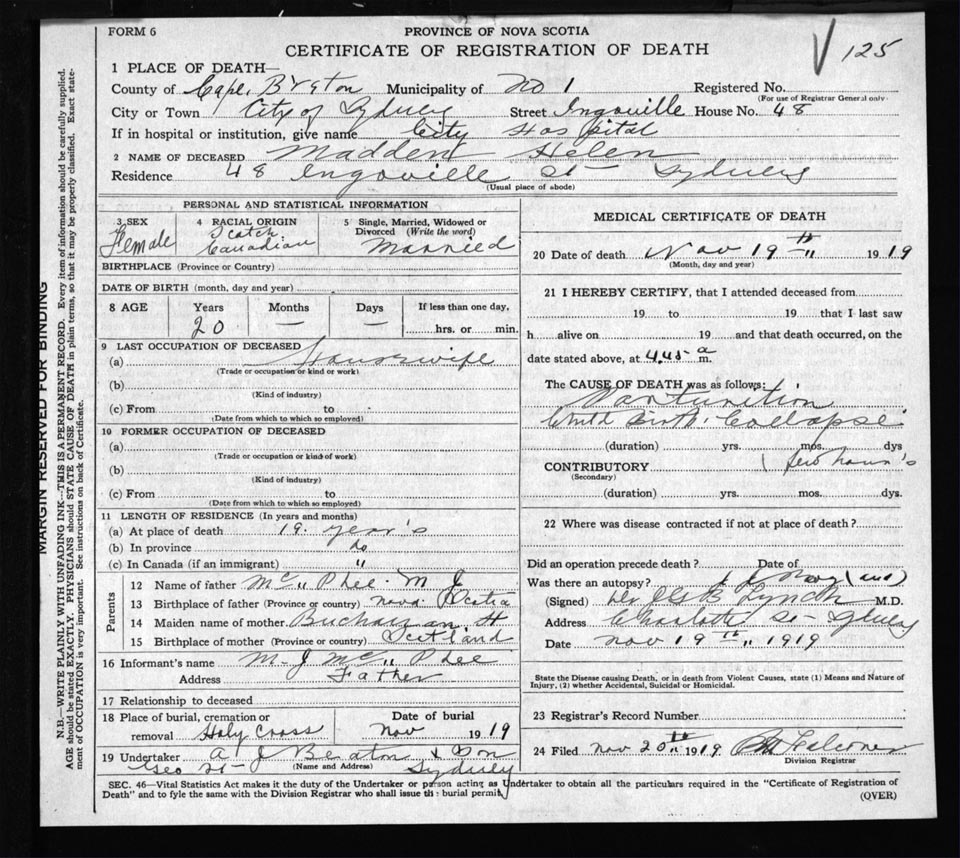 FORM 6
PROVINCE OF NOVA SCOTIA
CERTIFICATE OF REGISTRATION OF DEATH
125
1 PLACE OF DEATH—
County of Cape Breton Municipality of No 1 Registered No.
(For use of Registrar General only)
City or Town City of Sydney Street Ingoville House No. 48
If in hospital or institution, give name City Hospital
2 NAME OF DECEASED Madden Helen
Residence 48 Ingoville St Sydney
(Usual place of abode)
PERSONAL AND STATISTICAL INFORMATION
3 SEX Female
4 RACIAL ORIGIN Scotch Canadian
5 Single, Married, Widowed or Divorced (Write the word) Married
BIRTHPLACE (Province or Country)
DATE OF BIRTH (month, day and year)
8 AGE Years Months Days If less than one day,
20 — — hrs. or min.
9 LAST OCCUPATION OF DECEASED
(a) Housewife
(Trade or occupation or kind or work)
(b)
(Kind of industry)
(c) From to
(Date from which to which so employed)
10 FORMER OCCUPATION OF DECEASED
(a)
(Trade or occupation or kind of work)
(b)
(Kind of industry)
(c) From to
(Date from which to which so employed)
11 LENGTH OF RESIDENCE (In years and months)
(a) At place of death 19. year's
(b) In province do
(c) In Canada (if an immigrant) "
Parents
12 Name of father Mc"Phee. M J
13 Birthplace of father (Province or country) Nova Scotia
14 Maiden name of mother Buchanan H
15 Birthplace of mother (Province or country) Scotland
16 Informant's name M. J Mc"Phee
Address Father
17 Relationship to deceased
18 Place of burial, cremation or removal Holy Cross
Date of burial Nov 1919
19 Undertaker A J Beaton & Son
(Name and Address)
Geo St- Sydney
MEDICAL CERTIFICATE OF DEATH
20 Date of death Nov 19th " 1919
(Month, day and year)
21 I HEREBY CERTIFY, that I attended deceased from
19 to 19 that I last saw
h alive on 19 and that death occurred, on the
date stated above, at 4.45 a m.
The CAUSE OF DEATH was as follows:
Parturition
Child Birth. Collapse
(duration) yrs. mos. dys
CONTRIBUTORY (few hour's
(Secondary)
(duration) yrs. mos. dys.
22 Where was disease contracted if not at place of death?
Did an operation precede death? Date of
Was there an autopsy?
(Signed) Lynch M.D.
Address Charlotte St- Sydney
Date Nov 19th " 1919
State the Disease causing Death, or in death from Violent Causes, state (1) Means and Nature of
Injury, (2) whether Accidental, Suicidal or Homicidal.
23 Registrar's Record Number
24 Filed Nov 20th 1919 Falconer
Division Registrar
SEC. 46—Vital Statistics Act makes it the duty of the Undertaker or person acting as Undertaker to obtain all the particulars required in the "Certificate of Registration of
Death" and to fyle the same with the Division Registrar who shall issue the burial permit
(OVER)
MARGIN RESERVED FOR BINDING
N.B.—WRITE PLAINLY WITH UNFADING INK—THIS IS A PERMANENT RECORD. Every item of information should be carefully supplied.
AGE should be stated EXACTLY. PHYSICIANS should STATE CAUSE OF DEATH in plain terms, so that it may be properly classified. Exact state-
ment of OCCUPATION is very important. See instructions on back of Certificate.